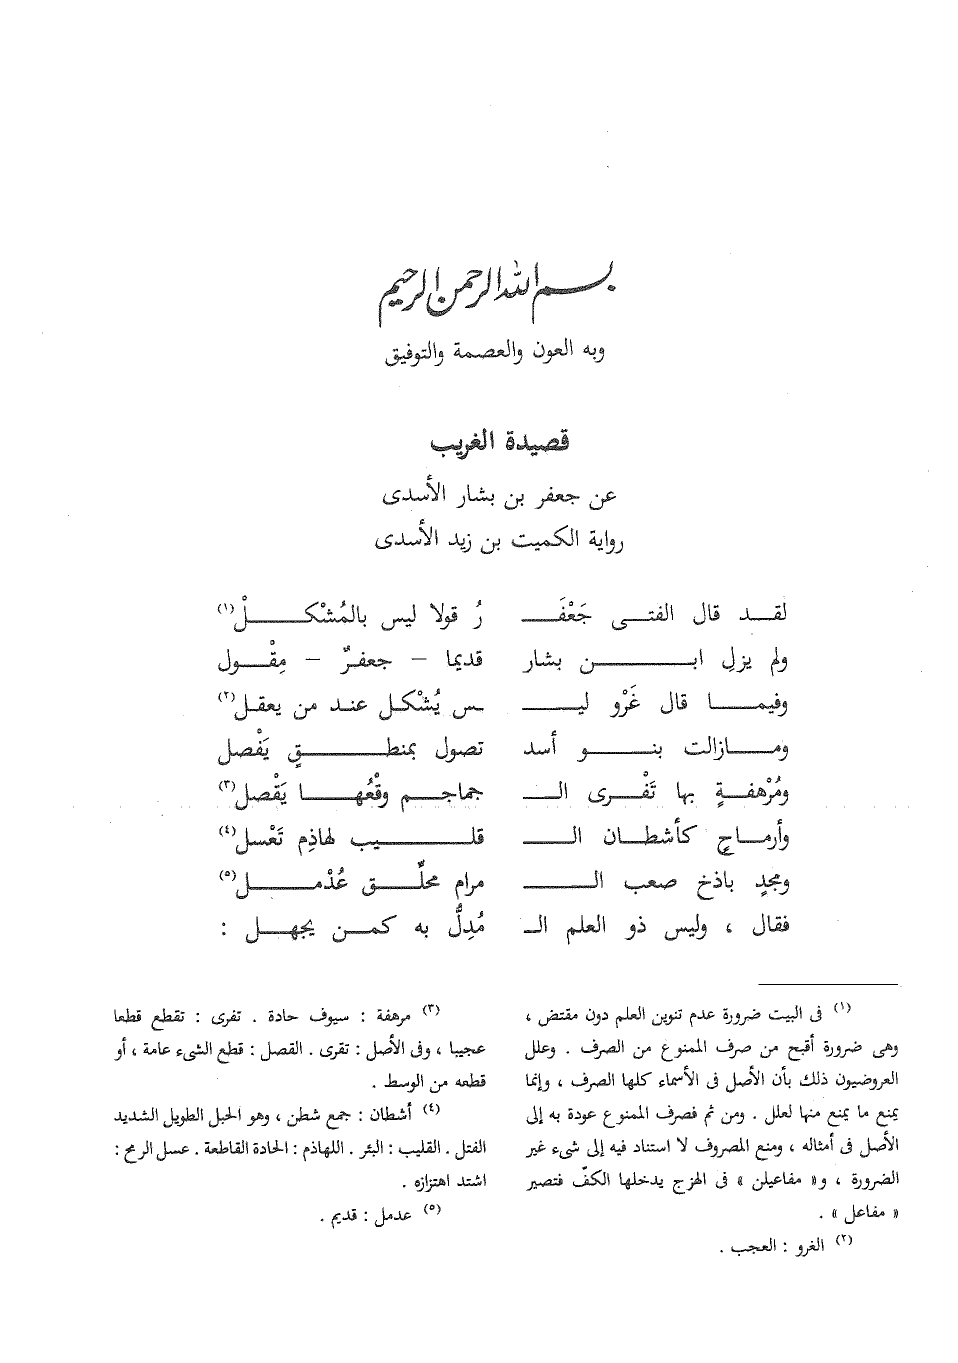 بسم الله الرحمن الرحيم
وبه العون والعصمة والتوفيق
قصيدة الغريب
عن جعفر بن بشار الأسدى
رواية الكميت بن زيد الأسدى
لقد قال الفتى جَعْفَـ رُ قولا ليس بالمُشْكلْ(١)
ولم يزلِ ابن بشار قديما – جعفرٌ – مِقْول
وفيما قال غَرْو ليـ ـس يُشْكل عند من يعقل(٢)
ومازالت بنو أسد تصول بمنطقٍ يَفْصل
ومُرْهفةٍ بها تَفْرى الـ جماجم وقْعُها يَقْصل(٣)
وأرماحٍ كأشطان الـ قليب لهاذِم تَعْسل(٤)
ومجدٍ باذخ صعب الـ مرام محلِّق عُدْمل(٥)
فقال ، وليس ذو العلم الـ مُدِلُّ به كمن يجهل :
(١) فى البيت ضرورة عدم تنوين العلم دون مقتض ،
وهى ضرورة أقبح من صرف الممنوع من الصرف . وعلل
العروضيون ذلك بأن الأصل فى الأسماء كلها الصرف ، وإنما
يمنع ما يمنع منها لعلل . ومن ثم فصرف الممنوع عودة به إلى
الأصل فى أمثاله ، ومنع المصروف لا استناد فيه إلى شىء غير
الضرورة ، و« مفاعيلن » فى الهزج يدخلها الكفّ فتصير
« مفاعل » .
(٢) الغرو : العجب .
(٣) مرهفة : سيوف حادة . تفرى : تقطع قطعا
عجيبا ، وفى الأصل : تقرى . القصل : قطع الشىء عامة ، أو
قطعه من الوسط .
(٤) أشطان : جمع شطن ، وهو الحبل الطويل الشديد
الفتل . القليب : البئر . اللهاذم : الحادة القاطعة . عسل الرمح :
اشتد اهتزازه .
(٥) عدمل : قديم .